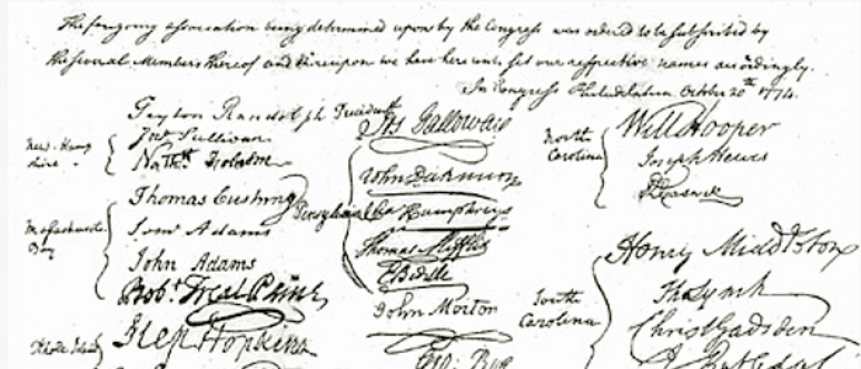 The foregoing association being determined upon by the Congress was ordered to be subscribed by
the several Members thereof and thereupon we have hereunto set our respective names accordingly.
In Congress Philadelphia October 20th 1774.
Peyton Randolph President
New-Hamp
shire
Jno Sullivan
Nathl Folsom
Massachusetts
Bay
Thomas Cushing
Sam Adams
John Adams
Robt Treat Paine
Rhode Island
Step Hopkins
Pensylvania
Jos Galloway
John Dickinson
Cha Humphreys
Thomas Mifflin
E Biddle
John Morton
Geo: Ross
North
Carolina
Will Hooper
Joseph Hewes
R Caswell
South
Carolina
Henry Middleton
Tho Lynch
Christ Gadsden
J Rutledge